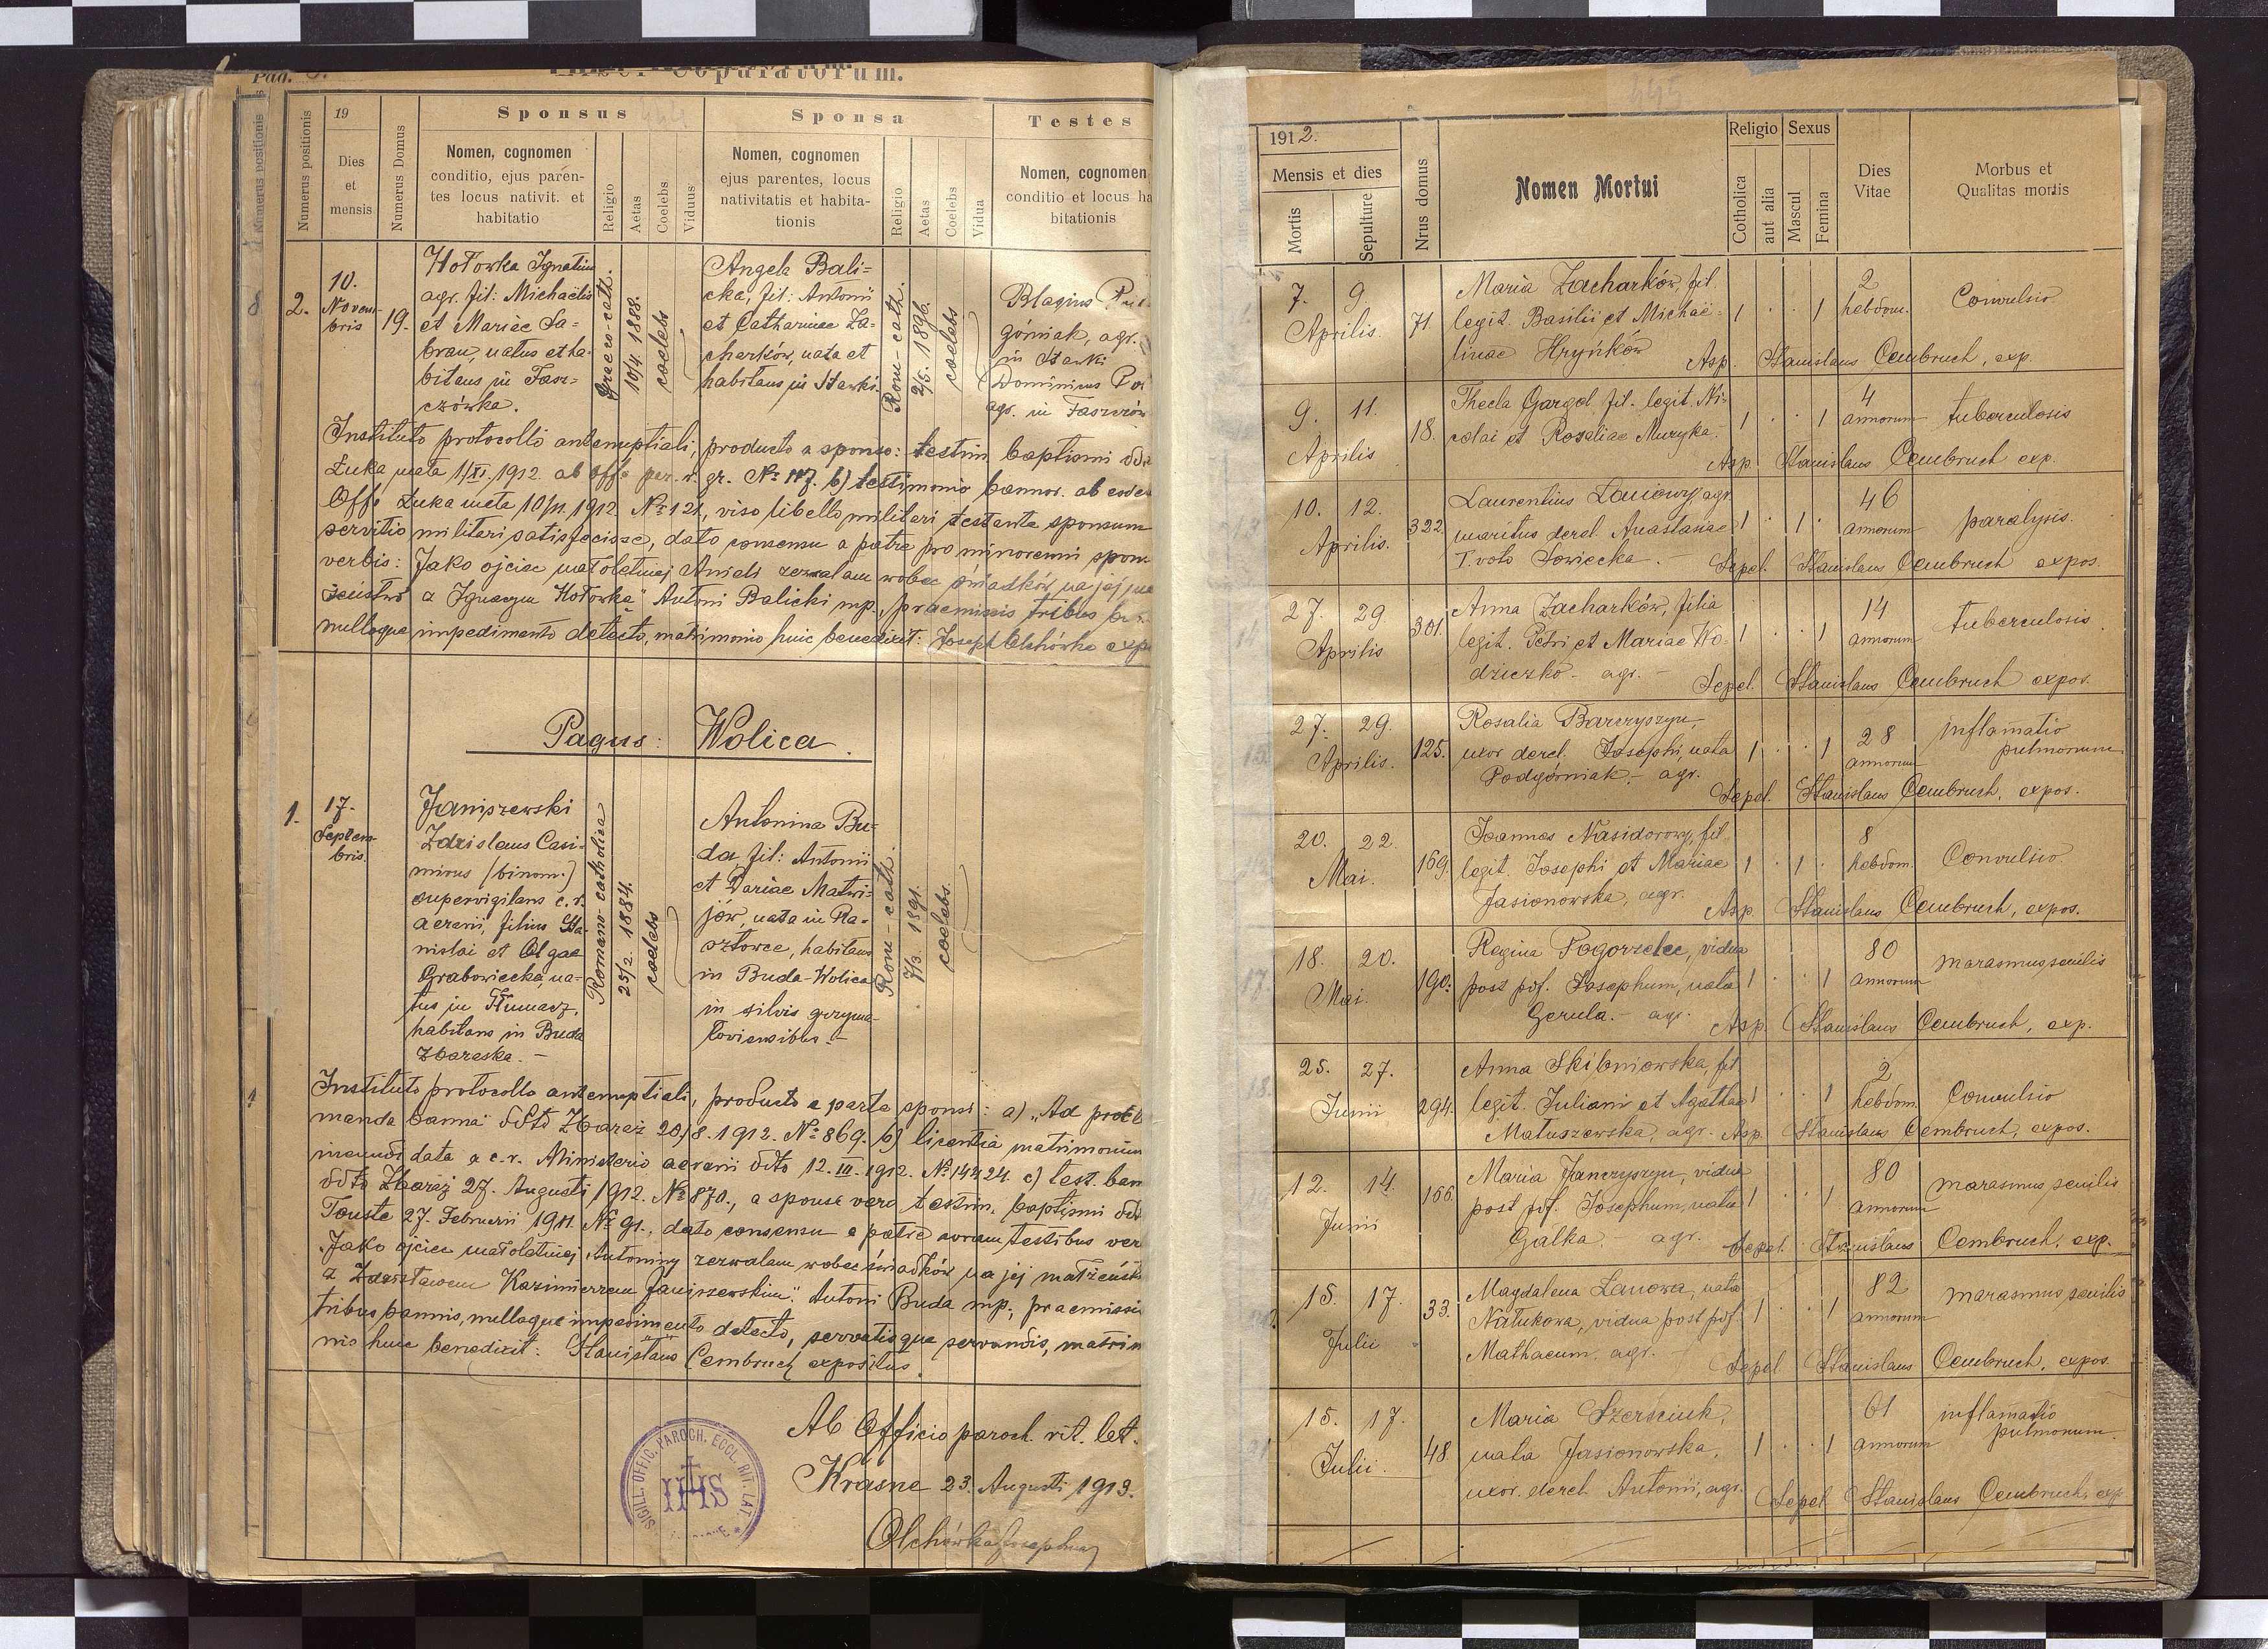 Pag. 3.
Liber Copulatorum.
Numerus positionis
19
Dies
et
mensis
Numerus Domus
Sponsus
444
Nomen, cognomen
conditio, ejus paren-
tes locus nativit. et
habitatio
Religio
Aetas
Coelebs
Viduus
Sponsa
Nomen, cognomen
ejus parentes, locus
nativitatis et habita-
tionis
Religio
Aetas
Coelebs
Vidua
Testes
Nomen, cognomen
conditio et locus ha
bitationis
2.
10.
Novem-
bris
19.
Hołowka Ignatius
agr. fil: Michaëlis
et Mariae Sa-
bran, natus et ha-
bitans in Fasz-
czówka.
Graeco-cath.
10/4 1888.
coelebs
Angela Bali-
cka, fil: Antonii
et Catharinae Za-
charków, nata et
habitans in Stawki
Rom-cath.
2/5. 1896.
coelebs
Blasius
górniak, agr.
in Stawki
Dominicus
agr. in Faszczów
Instituto protocollo antenuptiali, producto a sponso: testim. baptismi
Łuka mała 1/XI. 1912. ab offo par. r. gr. No 117. b) testimonio bannor. ab eodem
Offo Łuka mała 10/11. 1912. No 121, viso libello militari testante sponsum
servitio militari satisfecisse, dato consensu a patre pro minorenni spon
verbis: Jako ojciec małoletniej Anieli zezwalam wobec świadków na jej ma
żeństwo z Ignacym Hołowką" Antoni Balicki mp., praemissis tribus
nulloque impedimento detecto, matrimonio huic benedixit: Joseph Olchówka exp
Pagus: Wolica.
1.
17.
Septem-
bris.
Janiszewski
Zdzislaus Casi-
mirus (binom.)
supervigilans c. r.
aerarii, filius Sta-
nislai et Olgae
Grabowiecka, na-
tus in Tłumacz,
habitans in Buda
Zbaraska. -
Romano-catholica
25/2. 1884.
coelebs
Antonina Bu-
da, fil: Antonii
et Dariae Matwi-
jów, nata in Ra-
sztowce, habitans
in Buda-Wolica
in silvis grzyma-
łoviensibus. -
Rom-cath.
7/3. 1891.
coelebs.
Instituto protocollo antenuptiali, producto a parte sponsi: a) "Ad procla
manda banna" ddto Zbaraż 20/8. 1912. No 869. b) licentia matrimonium
ineundi data a c. r. Ministerio aerarii ddto 12. III. 1912. No 14424. c) test. ban
ddto Zbaraż 27. Augusti 1912. No 870., a sponsa vero testim. baptismi ddt
Touste 27. Februarii 1911. No 91., dato consensu a patre coram testibus ver
"Jako ojciec małoletniej Antoniny zezwalam wobec świadków na jej małżeńst
z Zdzisławem Kazimierzem Janiszewskim." Antoni Buda mp; praemissi
tribus bannis, nulloque impedimento detecto, servatisque servandis, matrim
nio huic benedixit: Stanislaus Cembruch expositus.
Ab Officio paroch. rit. lat.
Krasne 23. Augusti 1913.
Olchówka Josephus
SIGILL. OFFIC. PAROCH. ECCL. RIT. LAT.
IHS
445
1912.
Mensis et dies
Mortis
Sepulture
Nrus domus
Nomen Mortui
Religio
Catholica
aut alia
Sexus
Mascul
Femina
Dies
Vitae
Morbus et
Qualitas mortis
7. 9.
Aprilis.
71.
Maria Zacharków, fil.
legit. Basilii et Michaë-
linae Hryńków
1 . . 1
2
hebdom.
Convulsio
Asp. Stanislaus Cembruch, exp.
9. 11.
Aprilis
18.
Thecla Gargol fil. legit. Ni-
colai et Rosaliae Muzyka.
1 . . 1
4
annorum
tuberculosis
Asp. Stanislaus Cembruch exp.
10. 12.
Aprilis.
322
Laurentius Laniowy agr.
maritus derel. Anastasiae
I. voto Sowiecka. -
1 . 1 .
46
annorum
paralysis.
Sepel. Stanislaus Cembruch expos.
27. 29
Aprilis
301.
Anna Zacharków, filia
legit. Petri et Mariae Wo-
dziczko - agr. -
1 . . 1
14
annorum
tuberculosis.
Sepel. Stanislaus Cembruch expos.
27. 29.
Aprilis.
125.
Rosalia Barczyszyn,
uxor derel. Josephi, nata
Podgórniak - agr.
1 . . 1
28
annorum
inflamatio
pulmonum
Sepel. Stanislaus Cembruch, expos.
20. 22.
Mai.
169.
Joannes Nasidorowy, fil.
legit. Josephi et Mariae
Jasionowska, agr.
1 . 1 .
8
hebdom.
Convulsio
Asp. Stanislaus Cembruch, expos.
18. 20.
Mai.
190.
Regina Pogorzelec, vidua
post pdf. Josephum, nata
Gerula. - agr.
1 . . 1
80
annorum
marasmus senilis
Asp. Stanislaus Cembruch, exp.
25. 27.
Junii
294.
Anna Skibniowska, fil.
legit. Juliani et Agathae
Matuszewska, agr.
1 . . 1
2
hebdom.
Convulsio
Asp. Stanislaus Cembruch, expos.
12. 14.
Junii
166.
Maria Janczyszyn, vidua
post pdf. Josephum, nata
Galka. - agr.
1 . . 1
80
annorum
marasmus senilis
Sepel. Stanislaus Cembruch, exp.
15. 17.
Julii
33.
Magdalena Lanowa, nata
Natukowa, vidua post pdf.
Mathaeum, agr. -
1 . . 1
82
annorum
marasmus senilis
Sepel Stanislaus Cembruch, expos.
15. 17.
Julii.
48.
Maria Szerściuk,
nata Jasionowska,
uxor. derel. Antonii, agr.
1 . . 1
61
annorum
inflamatio
pulmonum.
Sepel. Stanislaus Cembruch, exp